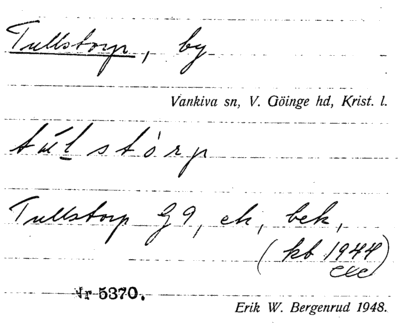 Tullstorp, by
Vankiva sn, V. Göinge hd, Krist. l.
túlstòrp
Tullstorp G9, ek, bek,
(kb 1944)
Nr 5370.
Erik W. Bergenrud 1948.